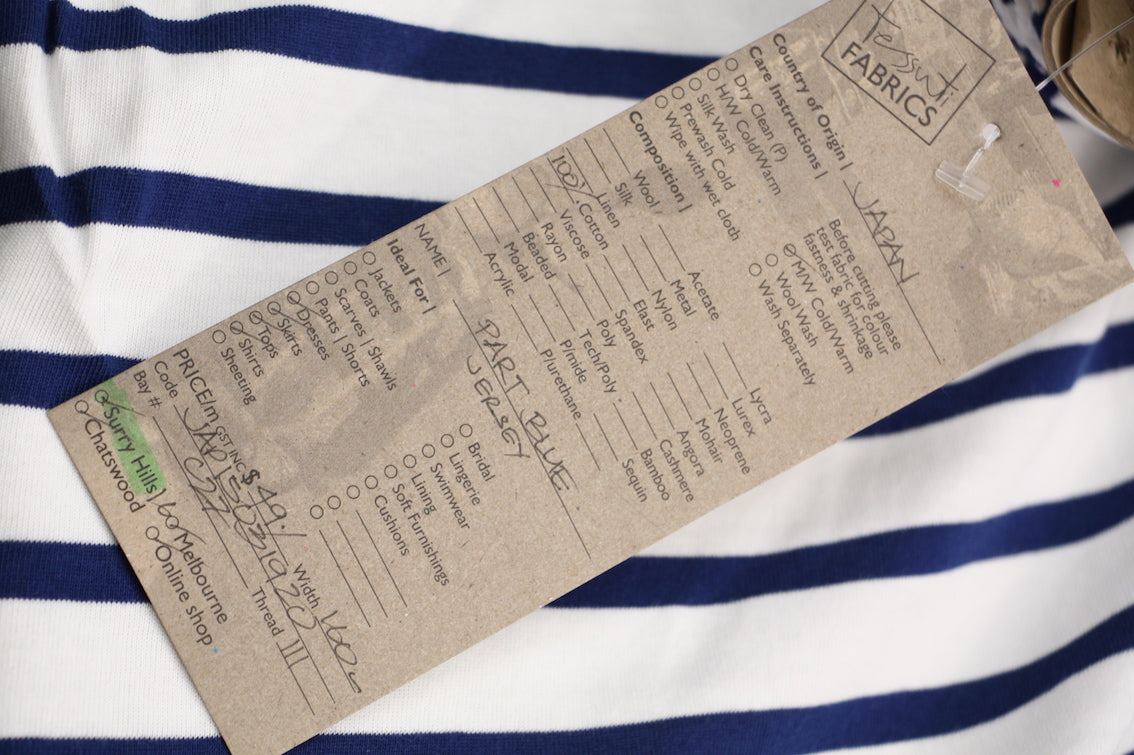 tessuti
FABRICS
Country of Origin | JAPAN
Care Instructions |
Dry Clean (P)
H/W Cold/Warm
Silk Wash
Prewash Cold
Wipe with wet cloth
Before cutting please
test fabric for colour
fastness & shrinkage
M/W Cold/Warm
Wool Wash
Wash Separately
Composition |
Wool
Silk
Linen
100% Cotton
Viscose
Rayon
Beaded
Modal
Acrylic
Acetate
Metal
Nylon
Elast
Spandex
Poly
Tech/Poly
P/mide
P/urethane
Lycra
Lurex
Neoprene
Mohair
Angora
Cashmere
Bamboo
Sequin
NAME | DART BLUE
JERSEY
Ideal For |
Jackets
Coats
Scarves | Shawls
Pants | Shorts
Dresses
Skirts
Tops
Shirts
Sheeting
Bridal
Lingerie
Swimwear
Lining
Soft Furnishings
Cushions
PRICE/m GST INC $49! Width 160
Code JAP15031920
Bay # C27 Thread |||
Surry Hills Melbourne
Chatswood Online shop